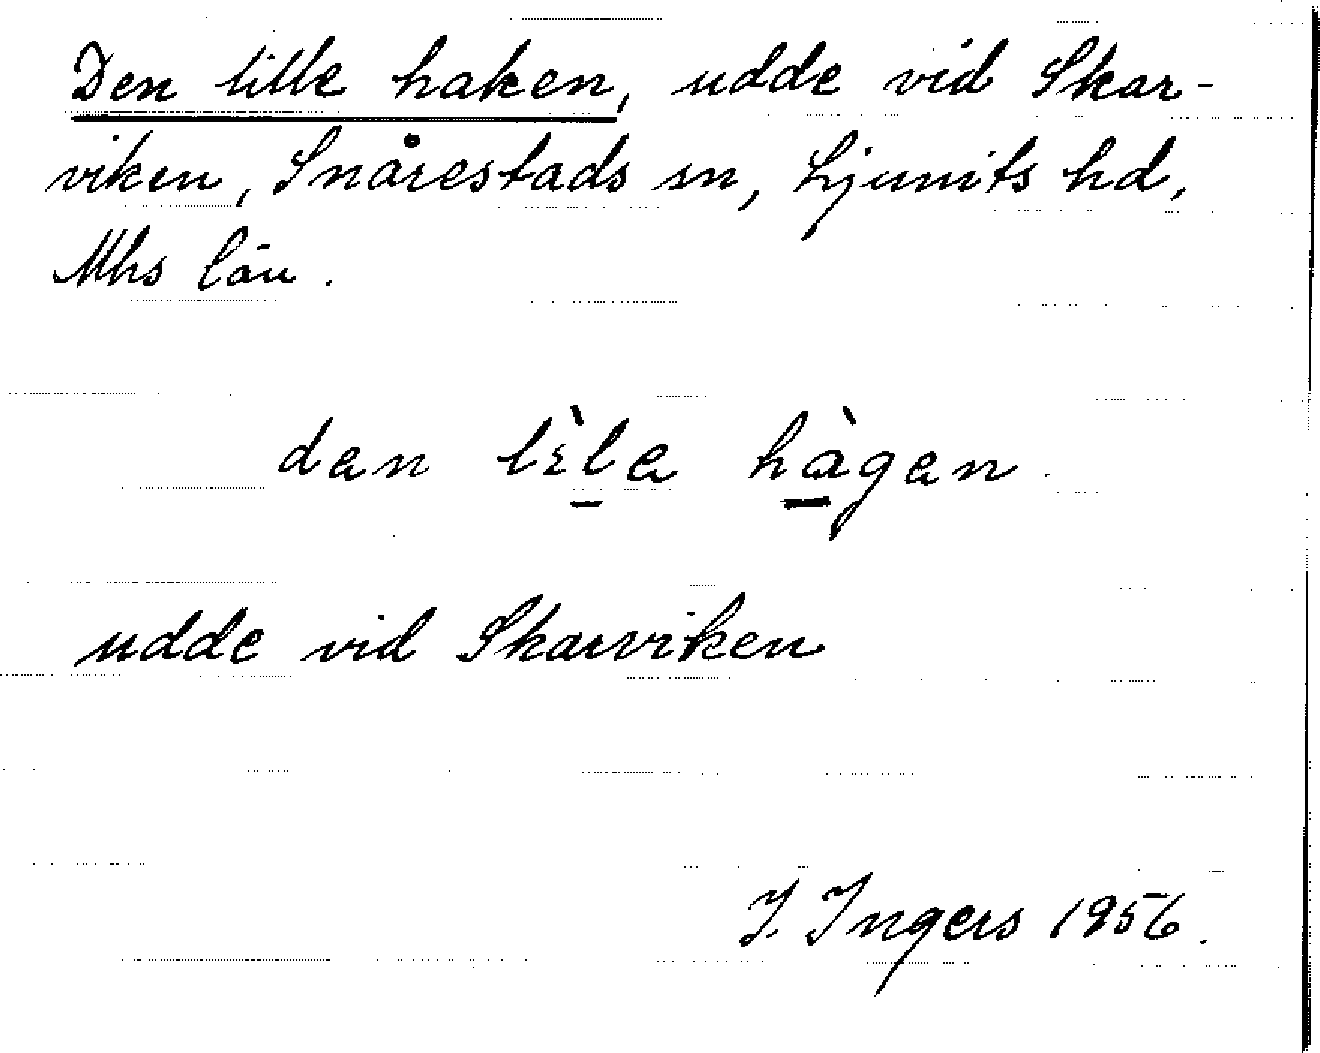 Den lille haken, udde vid Skar-
viken, Snårestads sn, Ljunits hd,
Mhs län.
dan lìla hàgan.
udde vid Skarviken
I. Ingers 1956.